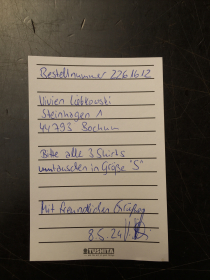 Bestellnummer 2261612
Vivien Labkowski
Steinhagen 1
44793 Bochum
Bitte alle 3 Shirts
umtauschen in Größe "S"
Mit freundlichen Grüßen
8.5.24
TOSHIBA